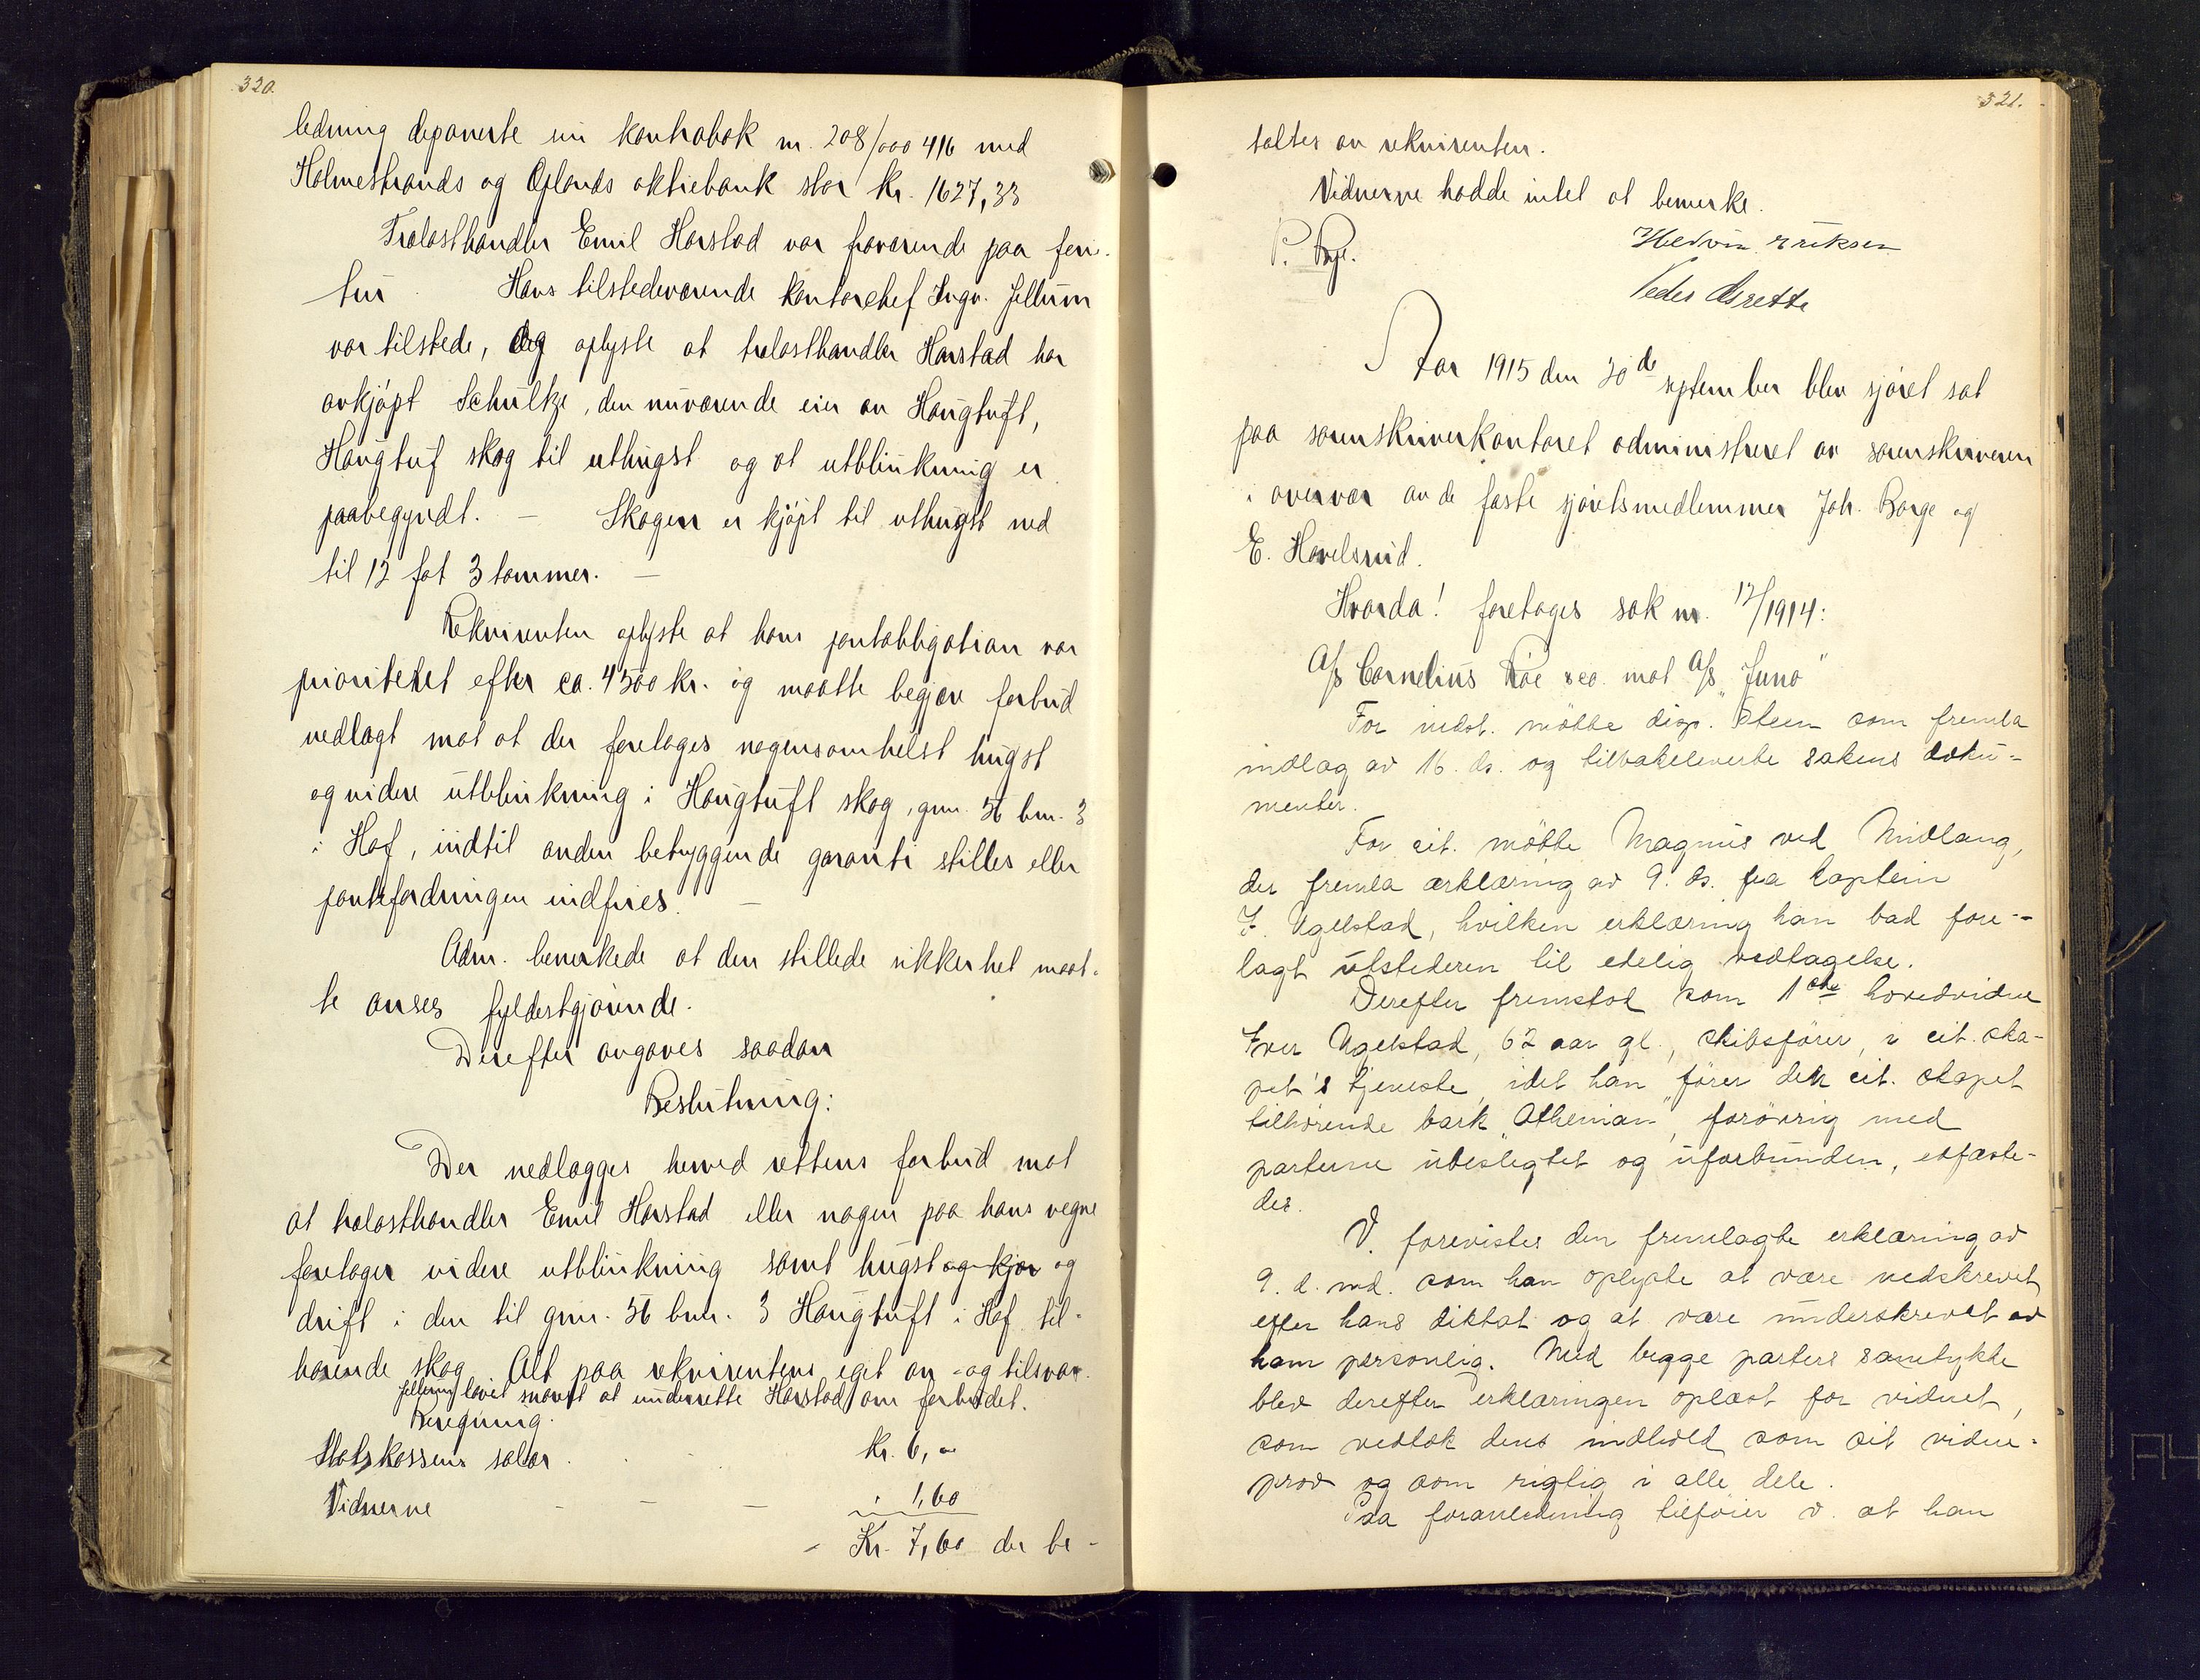 320.
ledning deponerte en kontrabok nr. 208/000 416 med
Holmestrands og Oplands aktiebank stor kr. 1627,33
Trælasthandler Emil Harstad var fraværende paa ferie-
tur. Hans tilstedeværende kontorchef Ingv. Jellum
var tilstede, og oplyste at trelasthandler Harstad har
avkjøpt Schultze, den nuværende eier av Haugtuft,
Haugtuf skog til uthugst og at utblinkning er
paabegyndt. — Skogen er kjøpt til uthugst ned
til 12 fot 3 tommer. —
Rekvirenten oplyste at hans pantobligation var
prioritetet efter ca. 4500 kr. og maatte begjære forbud
nedlagt mot at der foretages nogensomhelst hugst
og videre utblinkning i Haugtuft skog, gnr. 56 bnr. 3
i Hof, indtil anden betryggende garanti stilles eller
pantefordringen indfries. —
Adm. bemerkede at den stillede sikkerhet maat-
te anses fyldestgjørende.
Derefter avgaves saadan
Beslutning:
Der nedlægges herved rettens forbud mot
at trælasthandler Emil Harstad eller nogen paa hans vegne
foretager videre utblinkning samt hugst og kjør og
drift i den til gnr. 56 bnr. 3 Haugtuft i Hof til-
hørende skog. Alt paa rekvirentens eget an- og tilsvar.
Jellum lovet snarest at underrette Harstad om forbudet.
Beregning.
Statskassens salær . . . kr. 6,-
Vidnerne - - - " 1,60
- Kr. 7,60 der be-
321.
taltes av rekvirenten.
Vidnerne hadde intet at bemerke.
Hedvin Eriksen
Peder
Aar 1915 den 20de september blev sjøret sat
paa sorenskriverkontoret administreret av sorenskriveren
i overvær av de faste sjøretsmedlemmer Joh. Borge og
E. Havelsrud.
Hvorda! foretoges sak nr. 12/1914:
A/S Cornelius Røe & co. mot A/S "Juno"
For indst. møtte disp. Steen som fremla
indlæg av 16. ds. og tilbakeleverte sakens doku-
menter.
For cit. møtte Magnus ved Midlang,
der fremla ærklæring av 9. ds. fra kaptein
I. Ugelstad, hvilken erklæring han bad fore-
lagt utstederen til edelig vedtagelse.
Derefter fremstod som 1ste hovedvidne
Iver Ugelstad, 62 aar gl., skibsfører, i cit. ska-
pet's tjeneste, idet han fører dek cit. skapet
tilhørende bark "Athenian", forøvrig med
parterne ubeslegtet og uforbunden, edfæste-
des.
V. forevistes den fremlagte erklæring av
9. d. md. som han oplyste at være nedskrevet
efter hans diktat og at være underskrevet av
ham personlig. Med begge parters samtykke
blev derefter erklæringen oplæst for vidnet,
som vedtok dens indhold som sit vidne-
prov og som rigtig i alle dele.
Paa foranledning tilføier v. at han